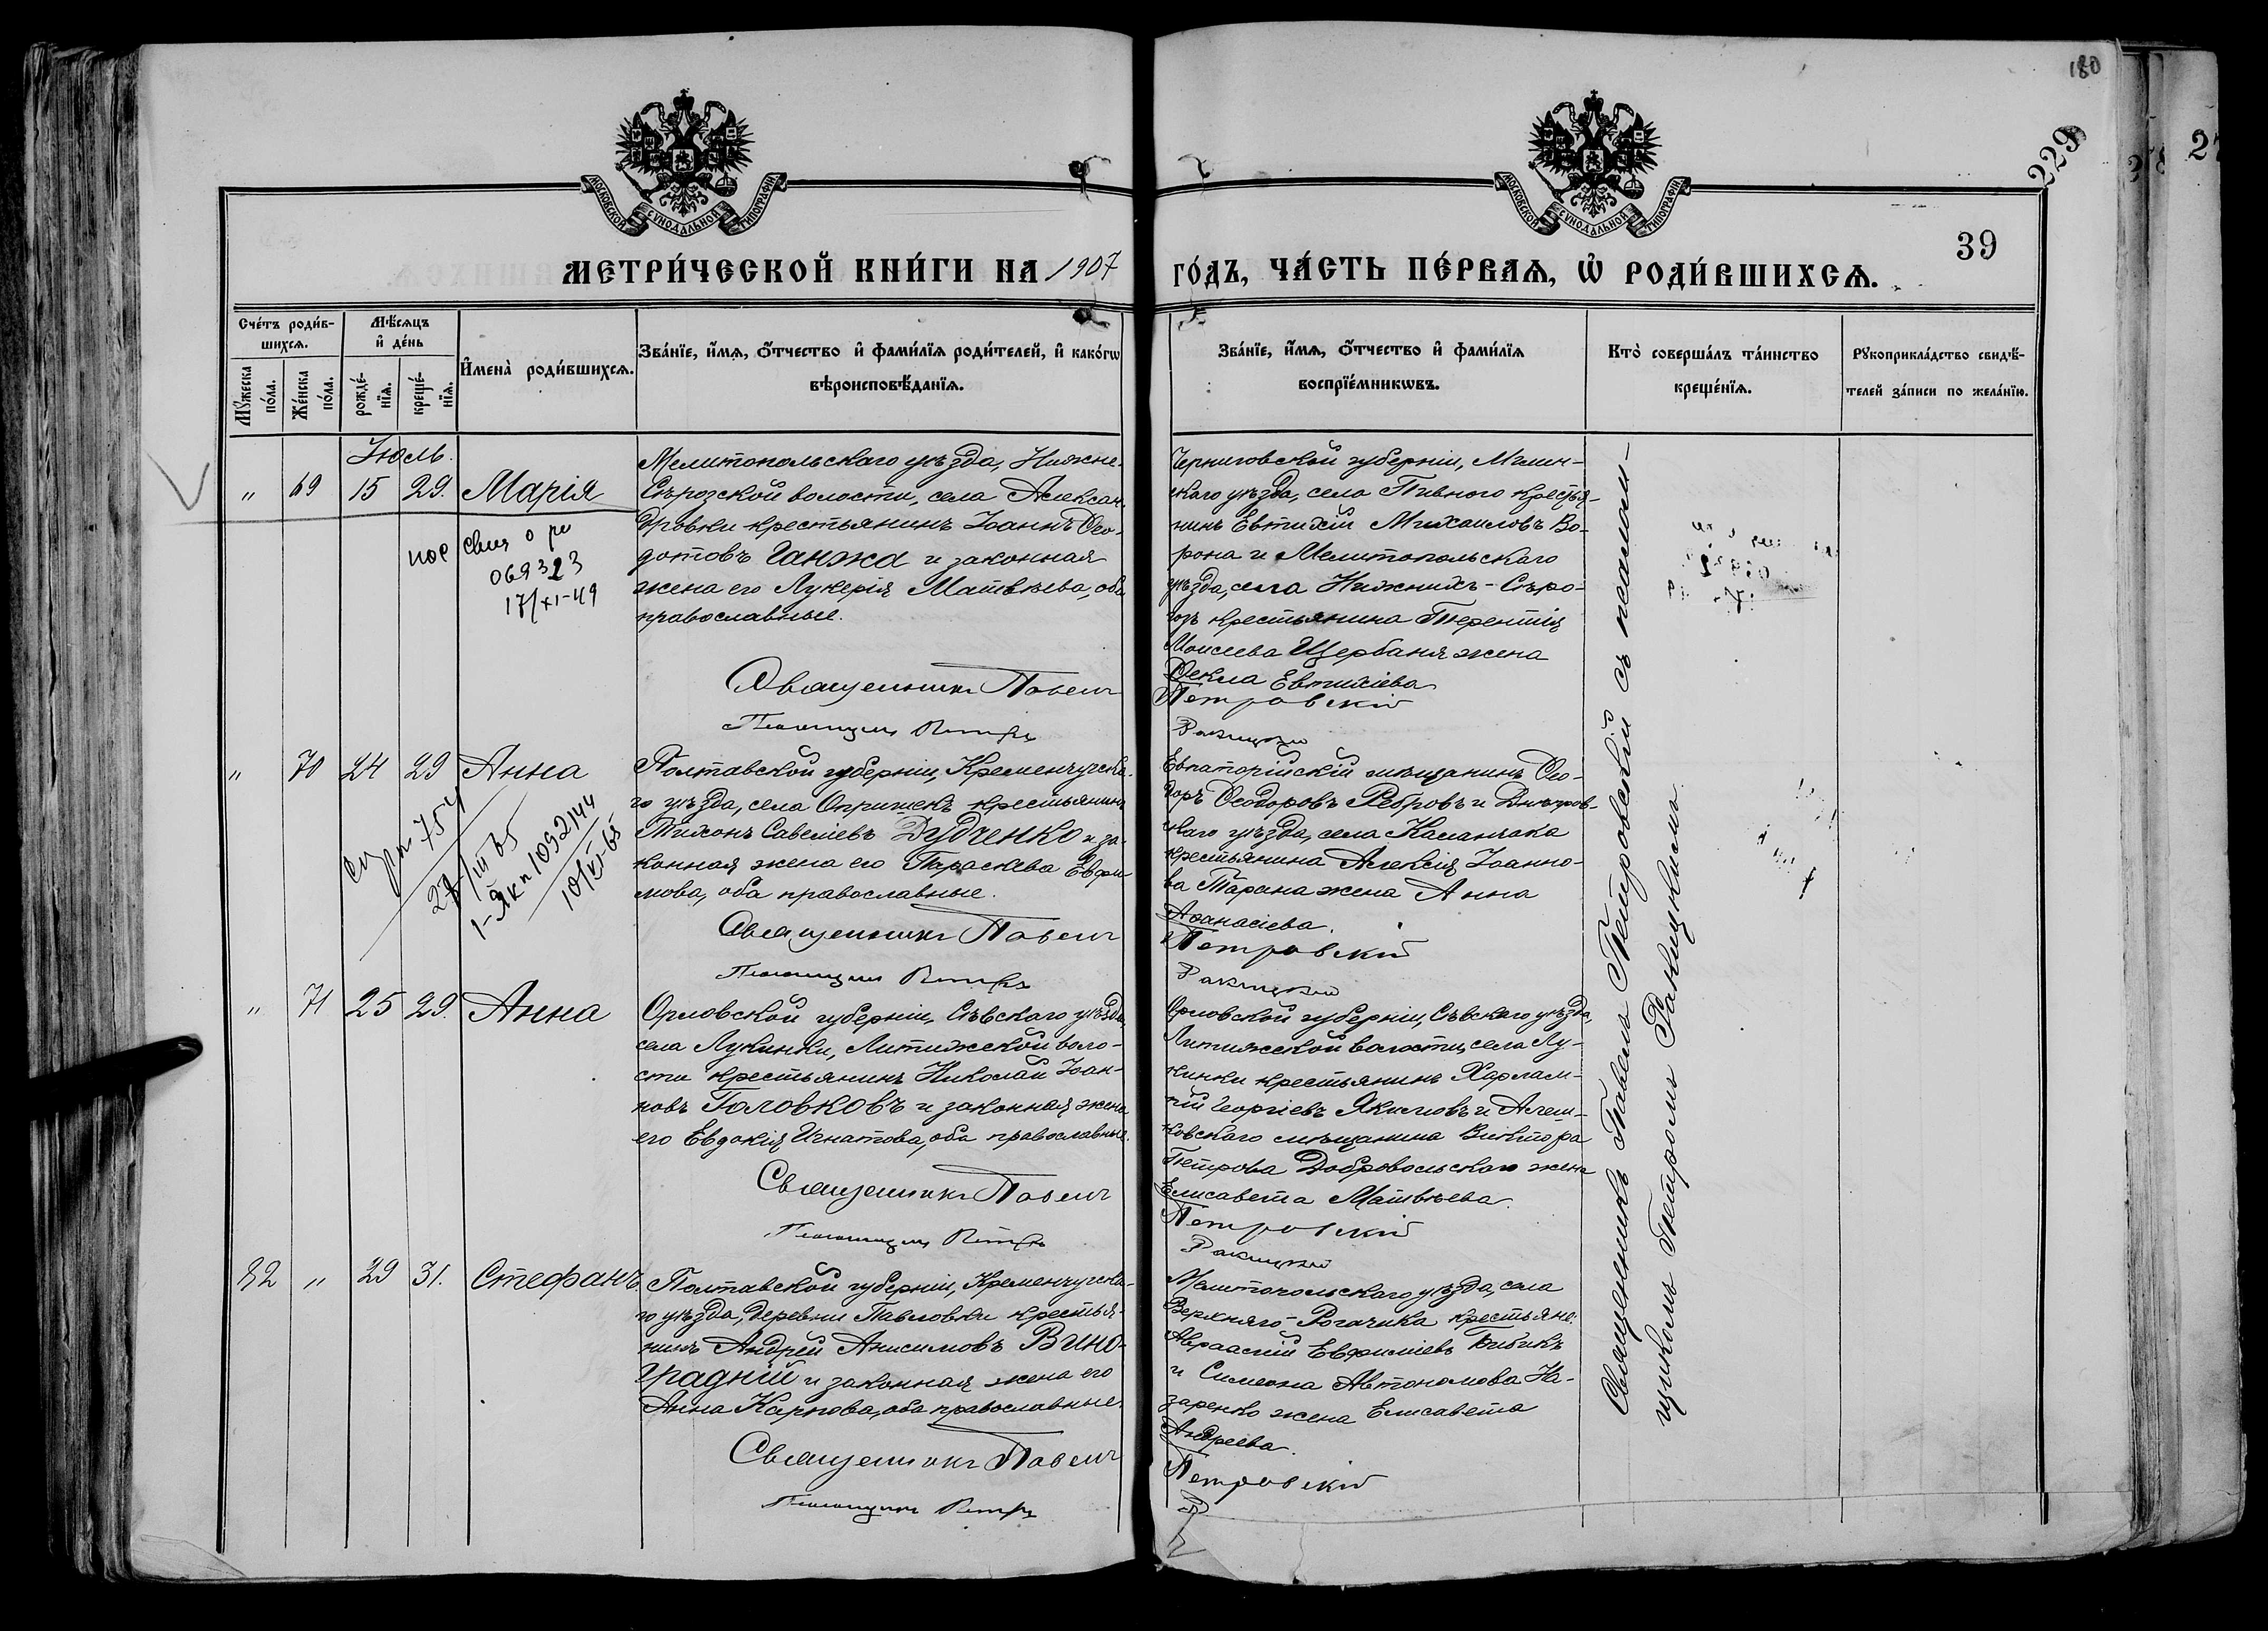 180
229
39
27
МОСКОВСКОЙ СѴНОДАЛЬНОЙ ТИПОГРАФІИ
МОСКОВСКОЙ СѴНОДАЛЬНОЙ ТИПОГРАФІИ
МЕТРИ́ЧЕСКОЙ КНИ́ГИ НА 1907
ГО́ДЪ, ЧА́СТЬ ПЕ́РВАѦ, Ѡ҆ РОДИ́ВШИХСѦ.
Сче́тъ роди́в-
шихсѧ.
Мꙋ́жеска по́ла.
Же́нска по́ла.
Мѣ́сѧцъ
и҆ де́нь
рожде́-
нїѧ.
креще́-
нїѧ.
И҆мена̀ роди́вшихсѧ.
Зва́нїе, и҆́мѧ, ѻ҆́тчество и҆ фами́лїѧ роди́телей, и҆ како́гѡ
вѣроисповѣ́данїѧ.
Зва́нїе, и҆́мѧ, ѻ҆́тчество и҆ фами́лїѧ
воспрїе́мникѡвъ.
Кто̀ соверша́лъ та́инство
креще́нїѧ.
Рꙋкоприкла́дство свидѣ́-
телей за́писи по жела́нїю.
Іюль.
" 69 15 29. Марія
Мелитопольскаго уѣзда, Нижне-
Сѣрозской волости, села Алексан-
дровки крестьянинъ Іоаннъ Ѳео-
дотовъ Ганжа и законная
жена его Лукерія Матвѣева, оба
православные.
Священникъ Павелъ
Псаломщикъ Петръ
пов свид о ро
069323
17/XI-49
Черниговской губерніи, Мглин-
скаго уѣзда, села Пивного крестья-
нинъ Евтихій Михаиловъ Во-
рона и Мелитопольскаго
уѣзда, села Нижнихъ-Сѣро-
гозъ крестьянина Терентія
Моисеева Щербаня жена
Ѳекла Евтихіева
Петровскій
Ракицкій
" 70 24 29 Анна
Полтавской губерніи, Кременчугска-
го уѣзда, села Опришекъ крестьянинъ
Тихонъ Савеліевъ Дудченко и за-
конная жена его Параскева Евфи-
мова, оба православные.
Священникъ Павелъ
Псаломщикъ Петръ
754
27/III 65
1-ЯК n 1092144
10/XI-65
Евпаторійскій мѣщанинъ Ѳео-
доръ Ѳеодоровъ Ребровъ и Днѣпров-
скаго уѣзда, села Каланчака
крестьянина Алексія Іоанно-
ва Тарана жена Анна
Аѳанасіева.
Петровскій
Ракицкій
" 71 25 29. Анна
Орловской губерніи, Сѣвскаго уѣзда,
села Лукинки, Литижской воло-
сти крестьянинъ Николай Іоан-
новъ Головковъ и законная жена
его Евдокія Игнатова, оба православные.
Священникъ Павелъ
Псаломщикъ Петръ
Орловской губерніи, Сѣвскаго уѣзда,
Литижской волости, села Лу-
кинки крестьянинъ Харлам-
пій Георгіевъ Якимовъ и Алеш-
ковскаго мѣщанина Виктора
Петрова Добровольскаго жена
Елисавета Матвѣева.
Петровскій
Ракицкій
32 " 29 31. Стефанъ.
Полтавской губерніи, Кременчугска-
го уѣзда, деревни Павловки крестья-
нинъ Андрей Анисимовъ Вино-
градній и законная жена его
Анна Карпова, оба православные.
Священникъ Павелъ
Псаломщикъ Петръ
Мелитопольскаго уѣзда, села
Верхняго-Рогачика крестьяне:
Авраамій Евфиміевъ Бибикъ
и Симеона Автономова На-
заренко жена Елисавета
Андреева.
Петровскій
Священникъ Павелъ Петровскій съ псалом-
щикомъ Петромъ Ракицкимъ.